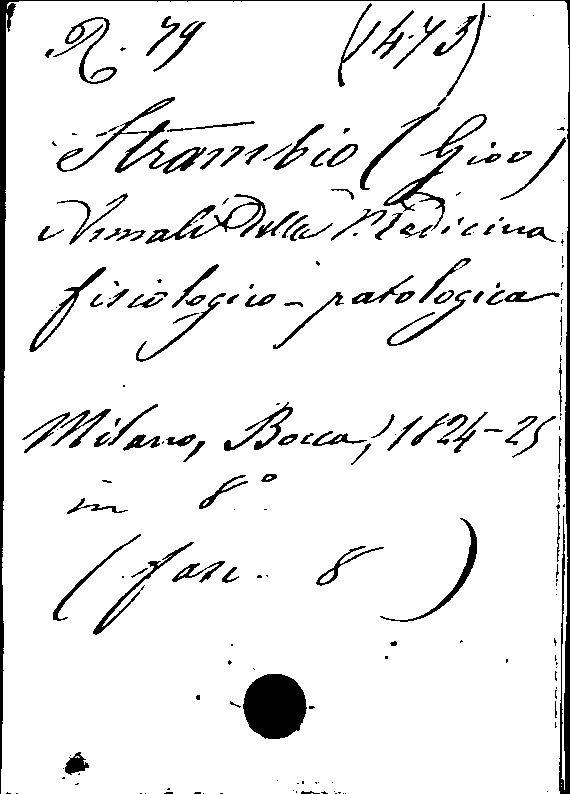 R. 79 (1473)
Strambio (Giov)
Annali Della Medicina
fisiologico-patologica
Milano, Bocca, 1824-25
in 8°
(fasc. 8)